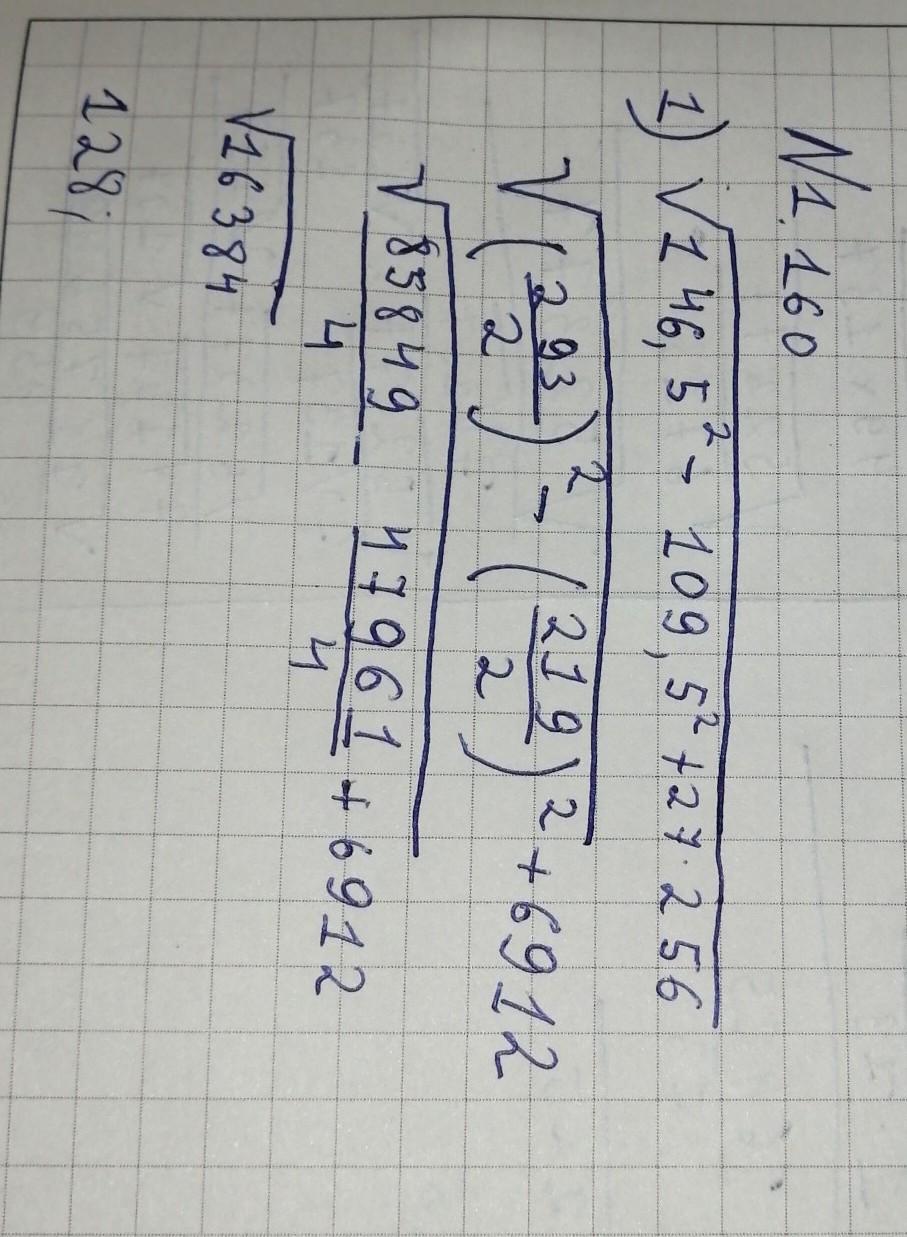 N1.160
1) √146,5² - 109,5² + 27·256
√(293/2)² - (219/2)² + 6912
√85849/4 - 47961/4 + 6912
√16384
128;